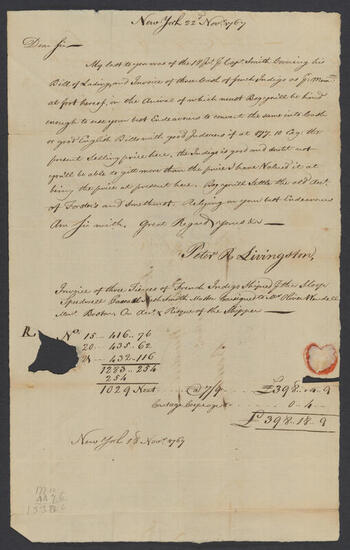 New York 22d Novr. 1769
Dear Sir
My last to you was of the 18 Inst. Capt. Smith Covering his
Bill of Lading and Invoice of three Casks of French Indigo as
at foot hereof, on the Arrival of which must Beg you'll be kind
enough to use your best Endeavours to convert the same into Cash
or good English Bills with good Indorsers if at
present Selling price here, the Indigo is good and doubt not
you'll be able to gitt more than the price I have Valued it at
being the price at present here. Beg you'll Settle the old Act.
of Forster's and Smithurst. Relying on your best Endeavours
Am Sir with Great Regard Yours &c
Peter R Livingston
Invoice of three Tierces of French Indigo Shiped the Sloop
Speedwell Smith Master Consigned to Mr. Oliver Wendell
Boston, On Act. & Risque of the Shipper
R No. 15 - 416 - 76
20 - 435 - 62
432 - 116
1283 - 254
254
1029 Neat @ 7/9 £398 " 9
0 - 4
£398 . 18 . 9
New York 18 Novr. 1769